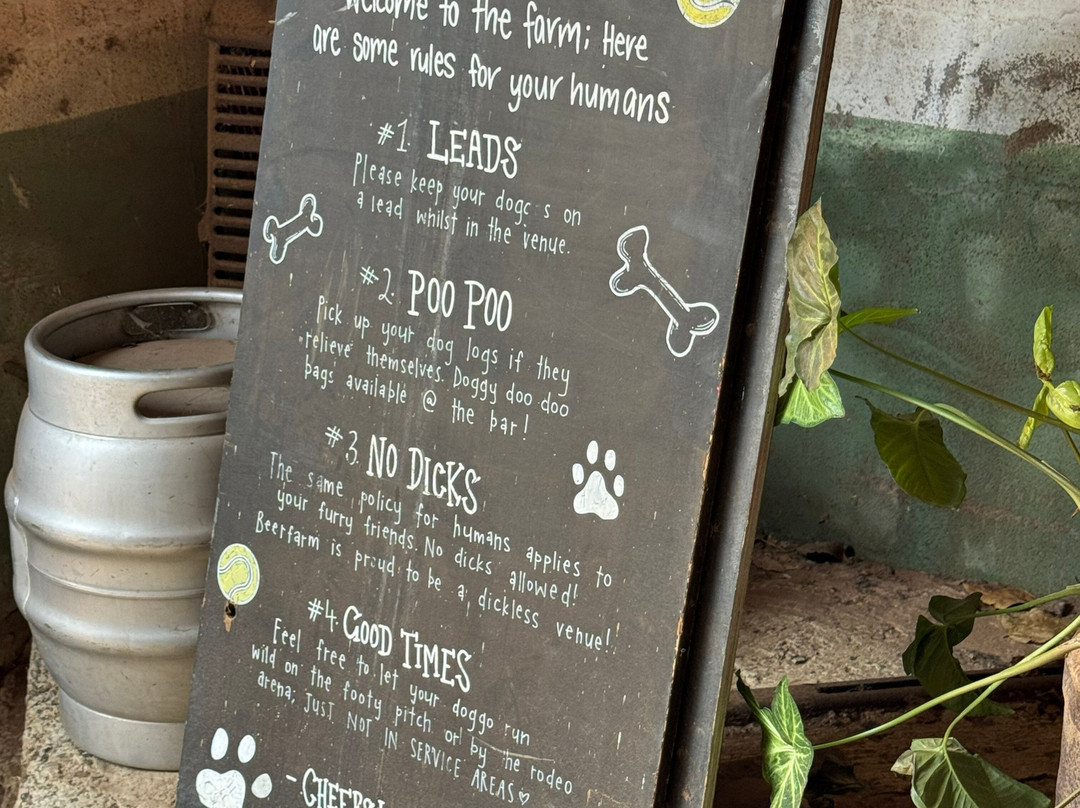 Welcome to the farm; Here
are some rules for your humans
#1. LEADS
Please keep your doggos on
a lead whilst in the venue.
#2. POO POO
Pick up your dog logs if they
relieve themselves. Doggy doo doo
bags available @ the bar!
#3. NO DICKS
The same policy for humans applies to
your furry friends. No dicks allowed!
Beerfarm is proud to be a dickless venue!
#4 GOOD TIMES
Feel free to let your doggo run
wild on the footy pitch or by the rodeo
arena; JUST NOT IN SERVICE AREAS♡
- CHEERS!